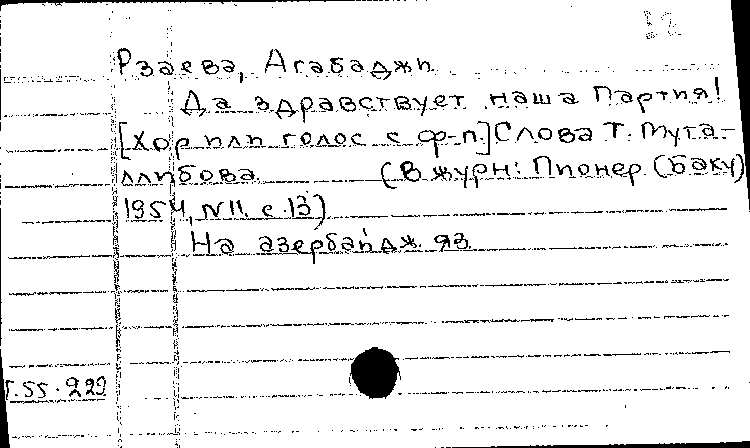 32
Рзаева, Агабаджи
Да здравствует наша Партия!
[Хор или голос с ф-п.] Слова Т. Мута-
ллибова. (В журн: Пионер (Баку)
1954, N 11. с. 13)
На азербайдж. яз.
Г.55.229